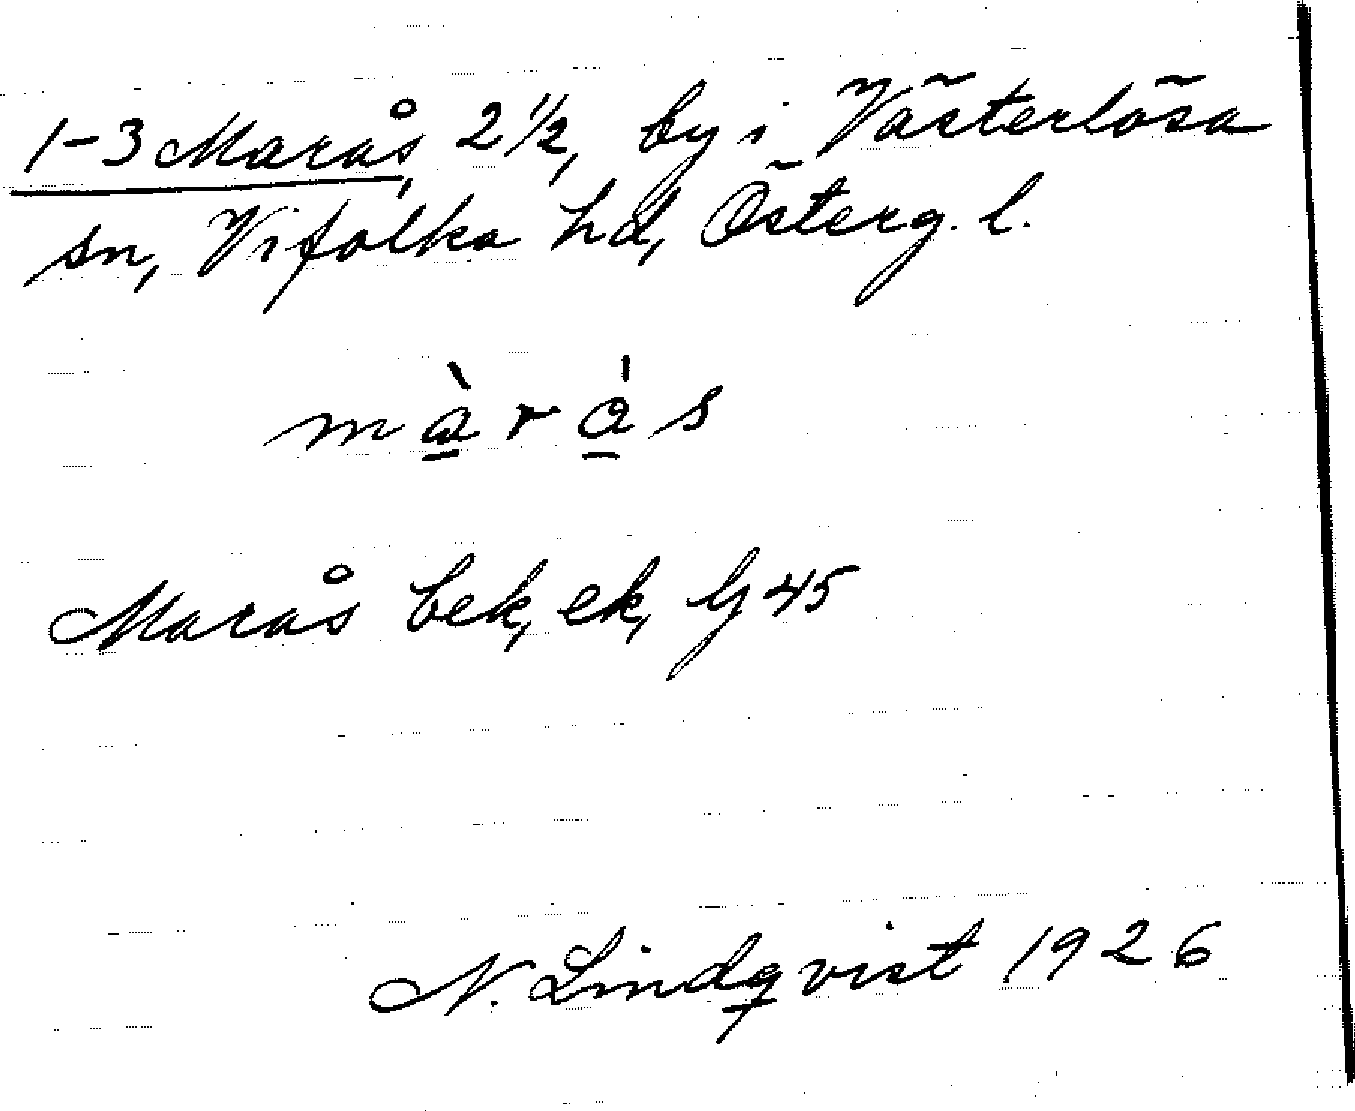 1-3 Marås, 2 1/2, by i Västerlösa
sn, Vifolka hd, Österg. l.
màrás
Marås bek, ek, Gj 45
N. Lindqvist 1926